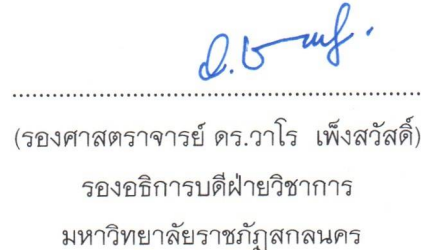 (รองศาสตราจารย์ ดร.วาโร เพ็งสวัสดิ์)
รองอธิการบดีฝ่ายวิชาการ
มหาวิทยาลัยราชภัฏสกลนคร